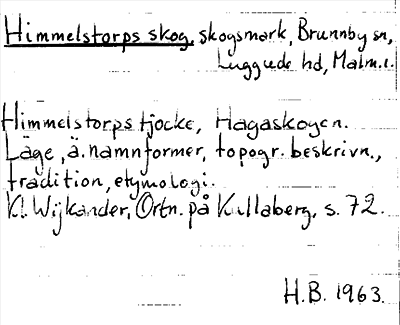 Himmelstorps skog, skogsmark, Brunnby sn,
Luggude hd, Malm.l.
Himmelstorps tjocke, Hagaskogen.
Läge, ä. namnformer, topogr. beskrivn.,
tradition, etymologi.
Kl. Wijkander, Ortn. på Kullaberg, s. 72.
H.B. 1963.